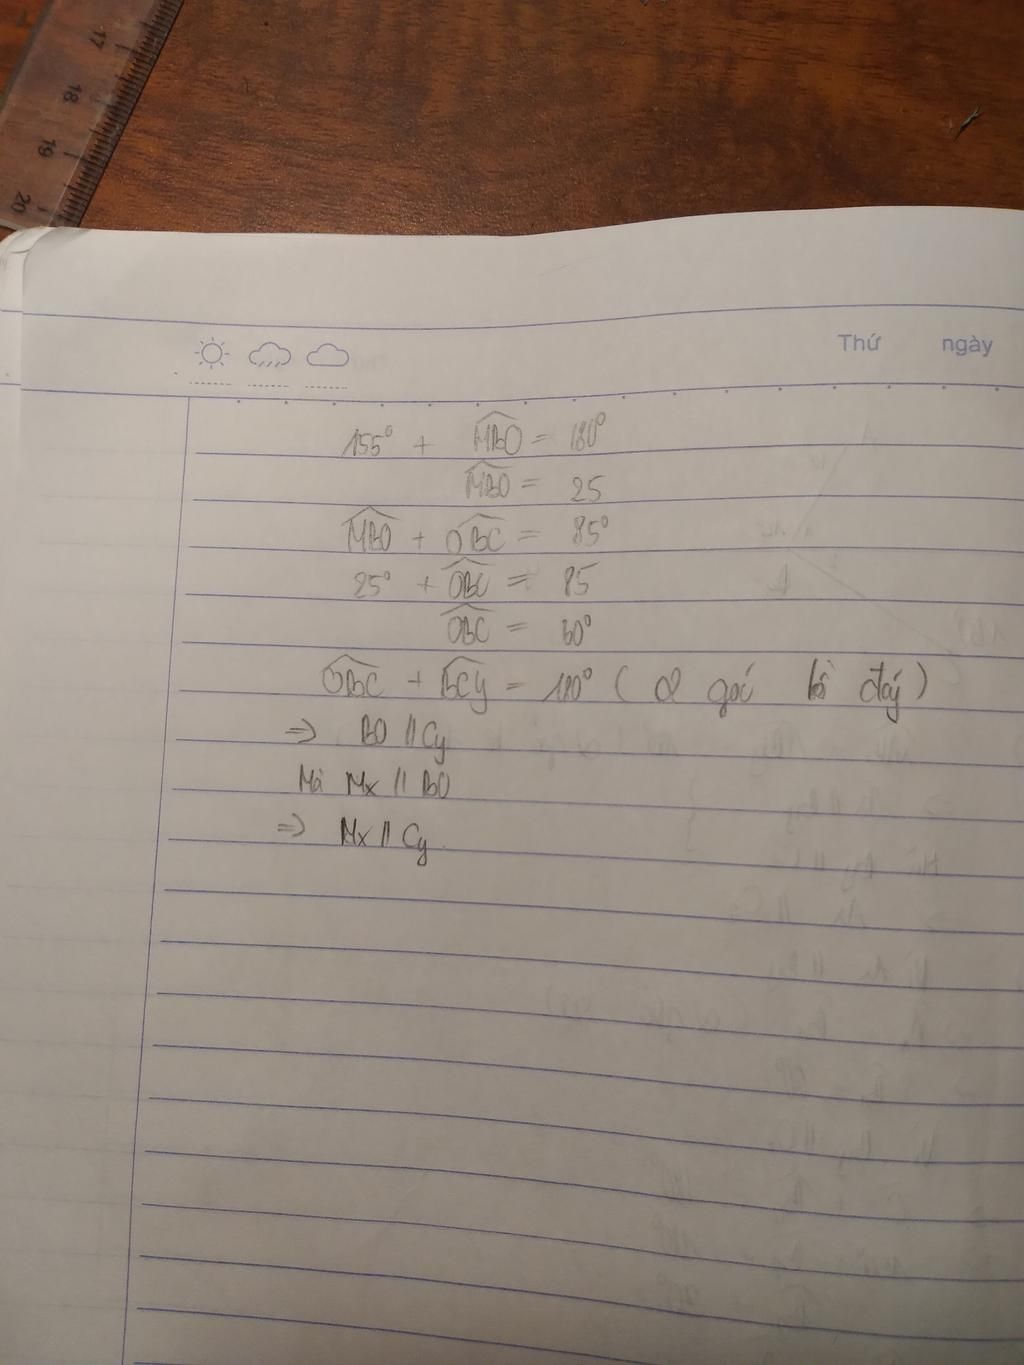 17
18
19
20
Thứ ngày
155° + MBO = 180°
MBO = 25
MBO + OBC = 85°
25° + OBC = 85
OBC = 60°
OBC + BCy = 180° ( 2 góc đáy )
=> BO // Cy
Mà Mx // BO
=> Mx // Cy